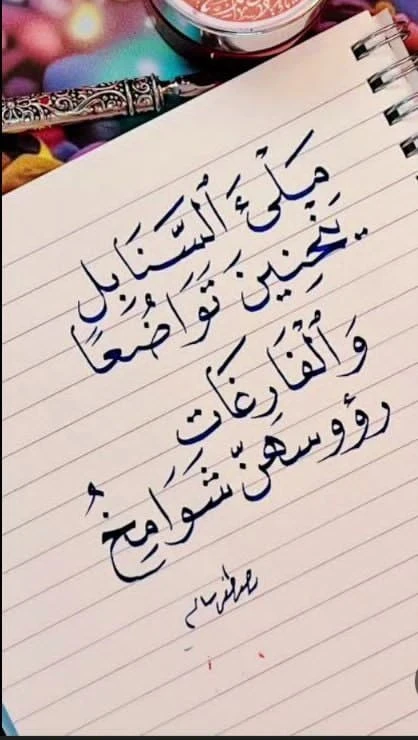 مَلْئَ ٱلسَّنَابِلِ
يَنْحَنِينَ تَوَاضُعًا
وَٱلْفَارِغَات
رؤوسهنّ شَوَامِخُ
مصطفى سالم